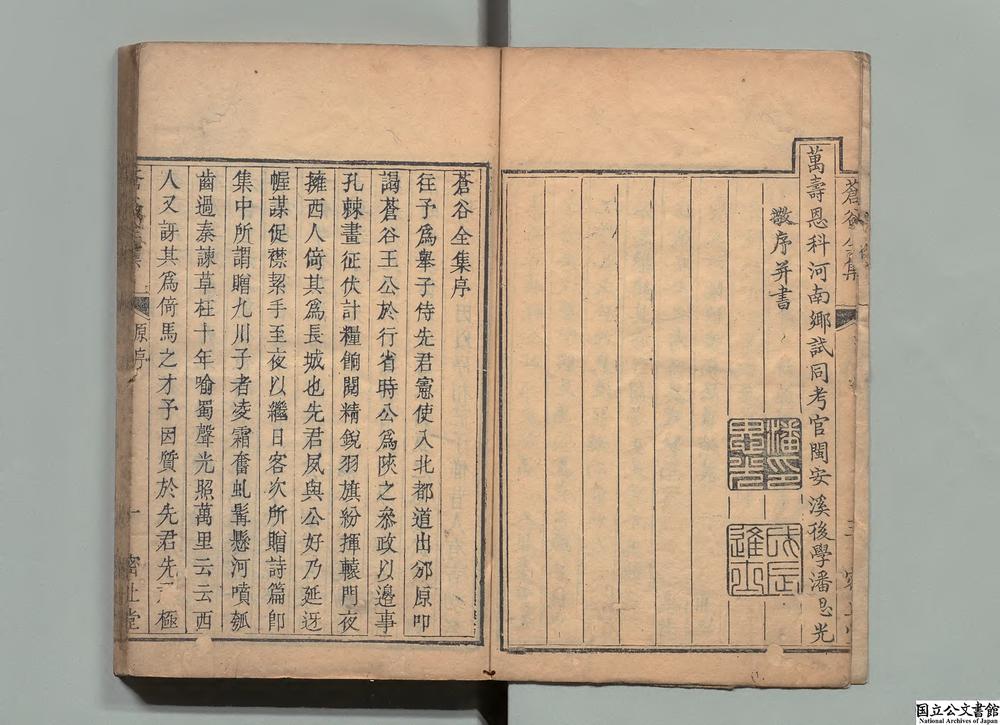 蒼谷全集
萬壽恩科河南鄉試同考官閩安溪後學潘思光
敬序并書
潘印思光
戊辰進士
蒼谷全集序
往予爲舉子侍先君憲使入北都道出邠原叩
謁蒼谷王公於行省時公爲陝之叅政以邊事
孔棘畫征伏計糧餉閱精銳羽旗紛揮轅門夜
擁西人倚其爲長城也先君夙與公好乃延迓
幄謀促襟絜手至夜以繼日客次所贈詩篇卽
集中所謂贈九川子者凌霜奮虬髯懸河噴瓠
齒過秦諫草在十年喻蜀聲光照萬里云云西
人又訝其爲倚馬之才予因質於先君先君極
原序
一 密止堂
国立公文書館
National Archives of Japan